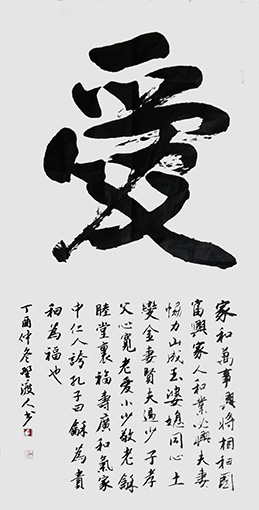 愛
家和萬事興將相和國
富興家人和業必興夫妻
協力山成玉婆媳同心土
變金妻賢夫過少子孝
父心寬老愛小少敬老龢
睦堂裏福壽廣和氣家
中仁人誇孔子曰龢為貴
和為福也
丁酉仲冬人书